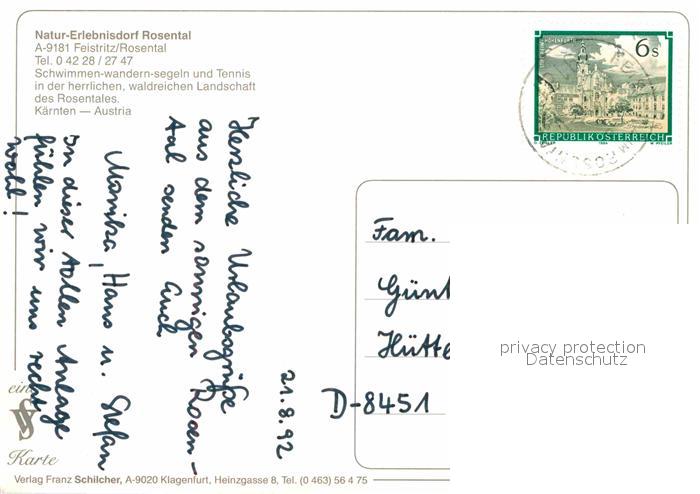 Natur-Erlebnisdorf Rosental
A-9181 Feistritz/Rosental
Tel. 0 42 28 / 27 47
Schwimmen-wandern-segeln und Tennis
in der herrlichen, waldreichen Landschaft
des Rosentales.
Kärnten — Austria
6s
REPUBLIK ÖSTERREICH
1984
21.8.92
Herzliche Urlaubsgrüße
aus dem sonnigen Rosen-
tal senden Euch
Monika, Hans u. Stefan
In dieser tollen Anlage
fühlen wir uns recht
wohl!
Fam.
Günt
Hütte
D-8451
privacy protection
Datenschutz
eine
Karte
Verlag Franz Schilcher, A-9020 Klagenfurt, Heinzgasse 8, Tel. (0 463) 56 4 75